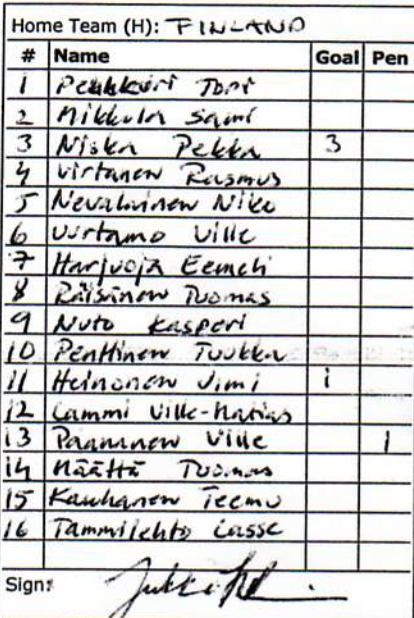 Home Team (H): FINLAND
# Name Goal Pen
1 Penkkuri Topi
2 Mikkula Sami
3 Niska Pekka 3
4 Virtanen Rasmus
5 Nevalainen Niko
6 Uurtamo Ville
7 Harjuoja Eemeli
8 Räisänen Tuomas
9 Nuto Kasperi
10 Penttinen Tuukka
11 Heinonen Jimi 1
12 Lammi Ville-Matias
13 Paananen Ville 1
14 Määttä Tuomas
15 Kauhanen Teemu
16 Tammilehto Lasse
Sign: